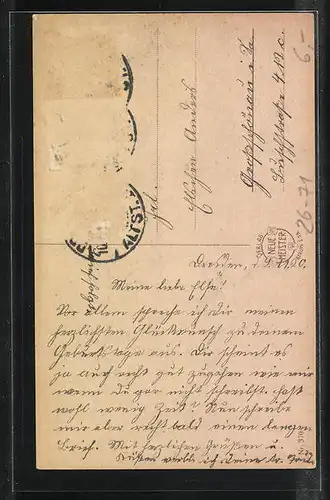 Frl.
Anders
Großschönau i. Sa.
6,-
26-71
ALTST.
NEUE
MEISTER
Dresden,
Meine liebe Else!
Vor allem spreche ich Dir meinen
herzlichsten Glückwunsch zu deinem
Geburtstage aus. Dir scheint es
ja auch recht gut zugehen wie mir
wenn du gar nicht schreibst. Hast
wohl wenig Zeit? Nun schreibe
mir aber recht bald einen langen
Brief. Mit herzlichen Grüßen u.
Küssen verbl. ich deine tr.